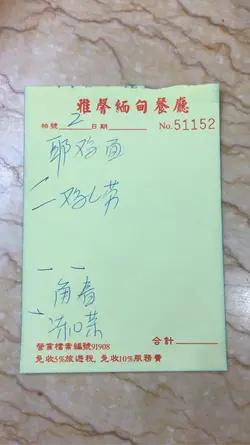 雅馨緬甸餐廳
枱號 2 日期 No.51152
耶鸡面
二 鸡
一 一
角春
冻0菜
營業檔案編號91908 合計
免收5%旅遊稅，免收10%服務費